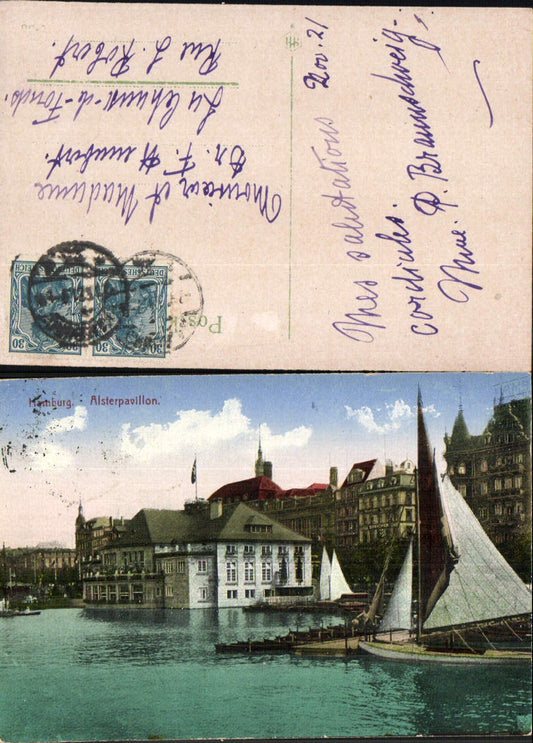 Nov. 21
Mes salutations
cordiales.
Mme. P. Braunschweig.
Monsieur et Madame
Dr. F. Humbert.
La Chaux-de-Fonds.
Rue L. Robert.
Post
DEUTSCHES REICH
30
30
Hamburg. Alsterpavillon.